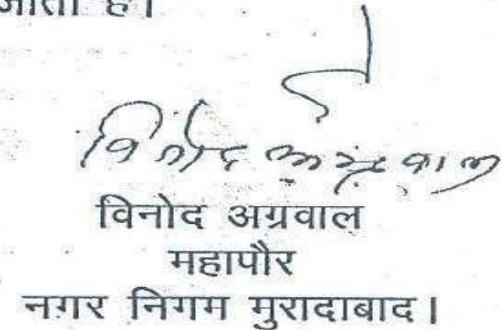 जाता है।
विनोद अग्रवाल
विनोद अग्रवाल
महापौर
नगर निगम मुरादाबाद।